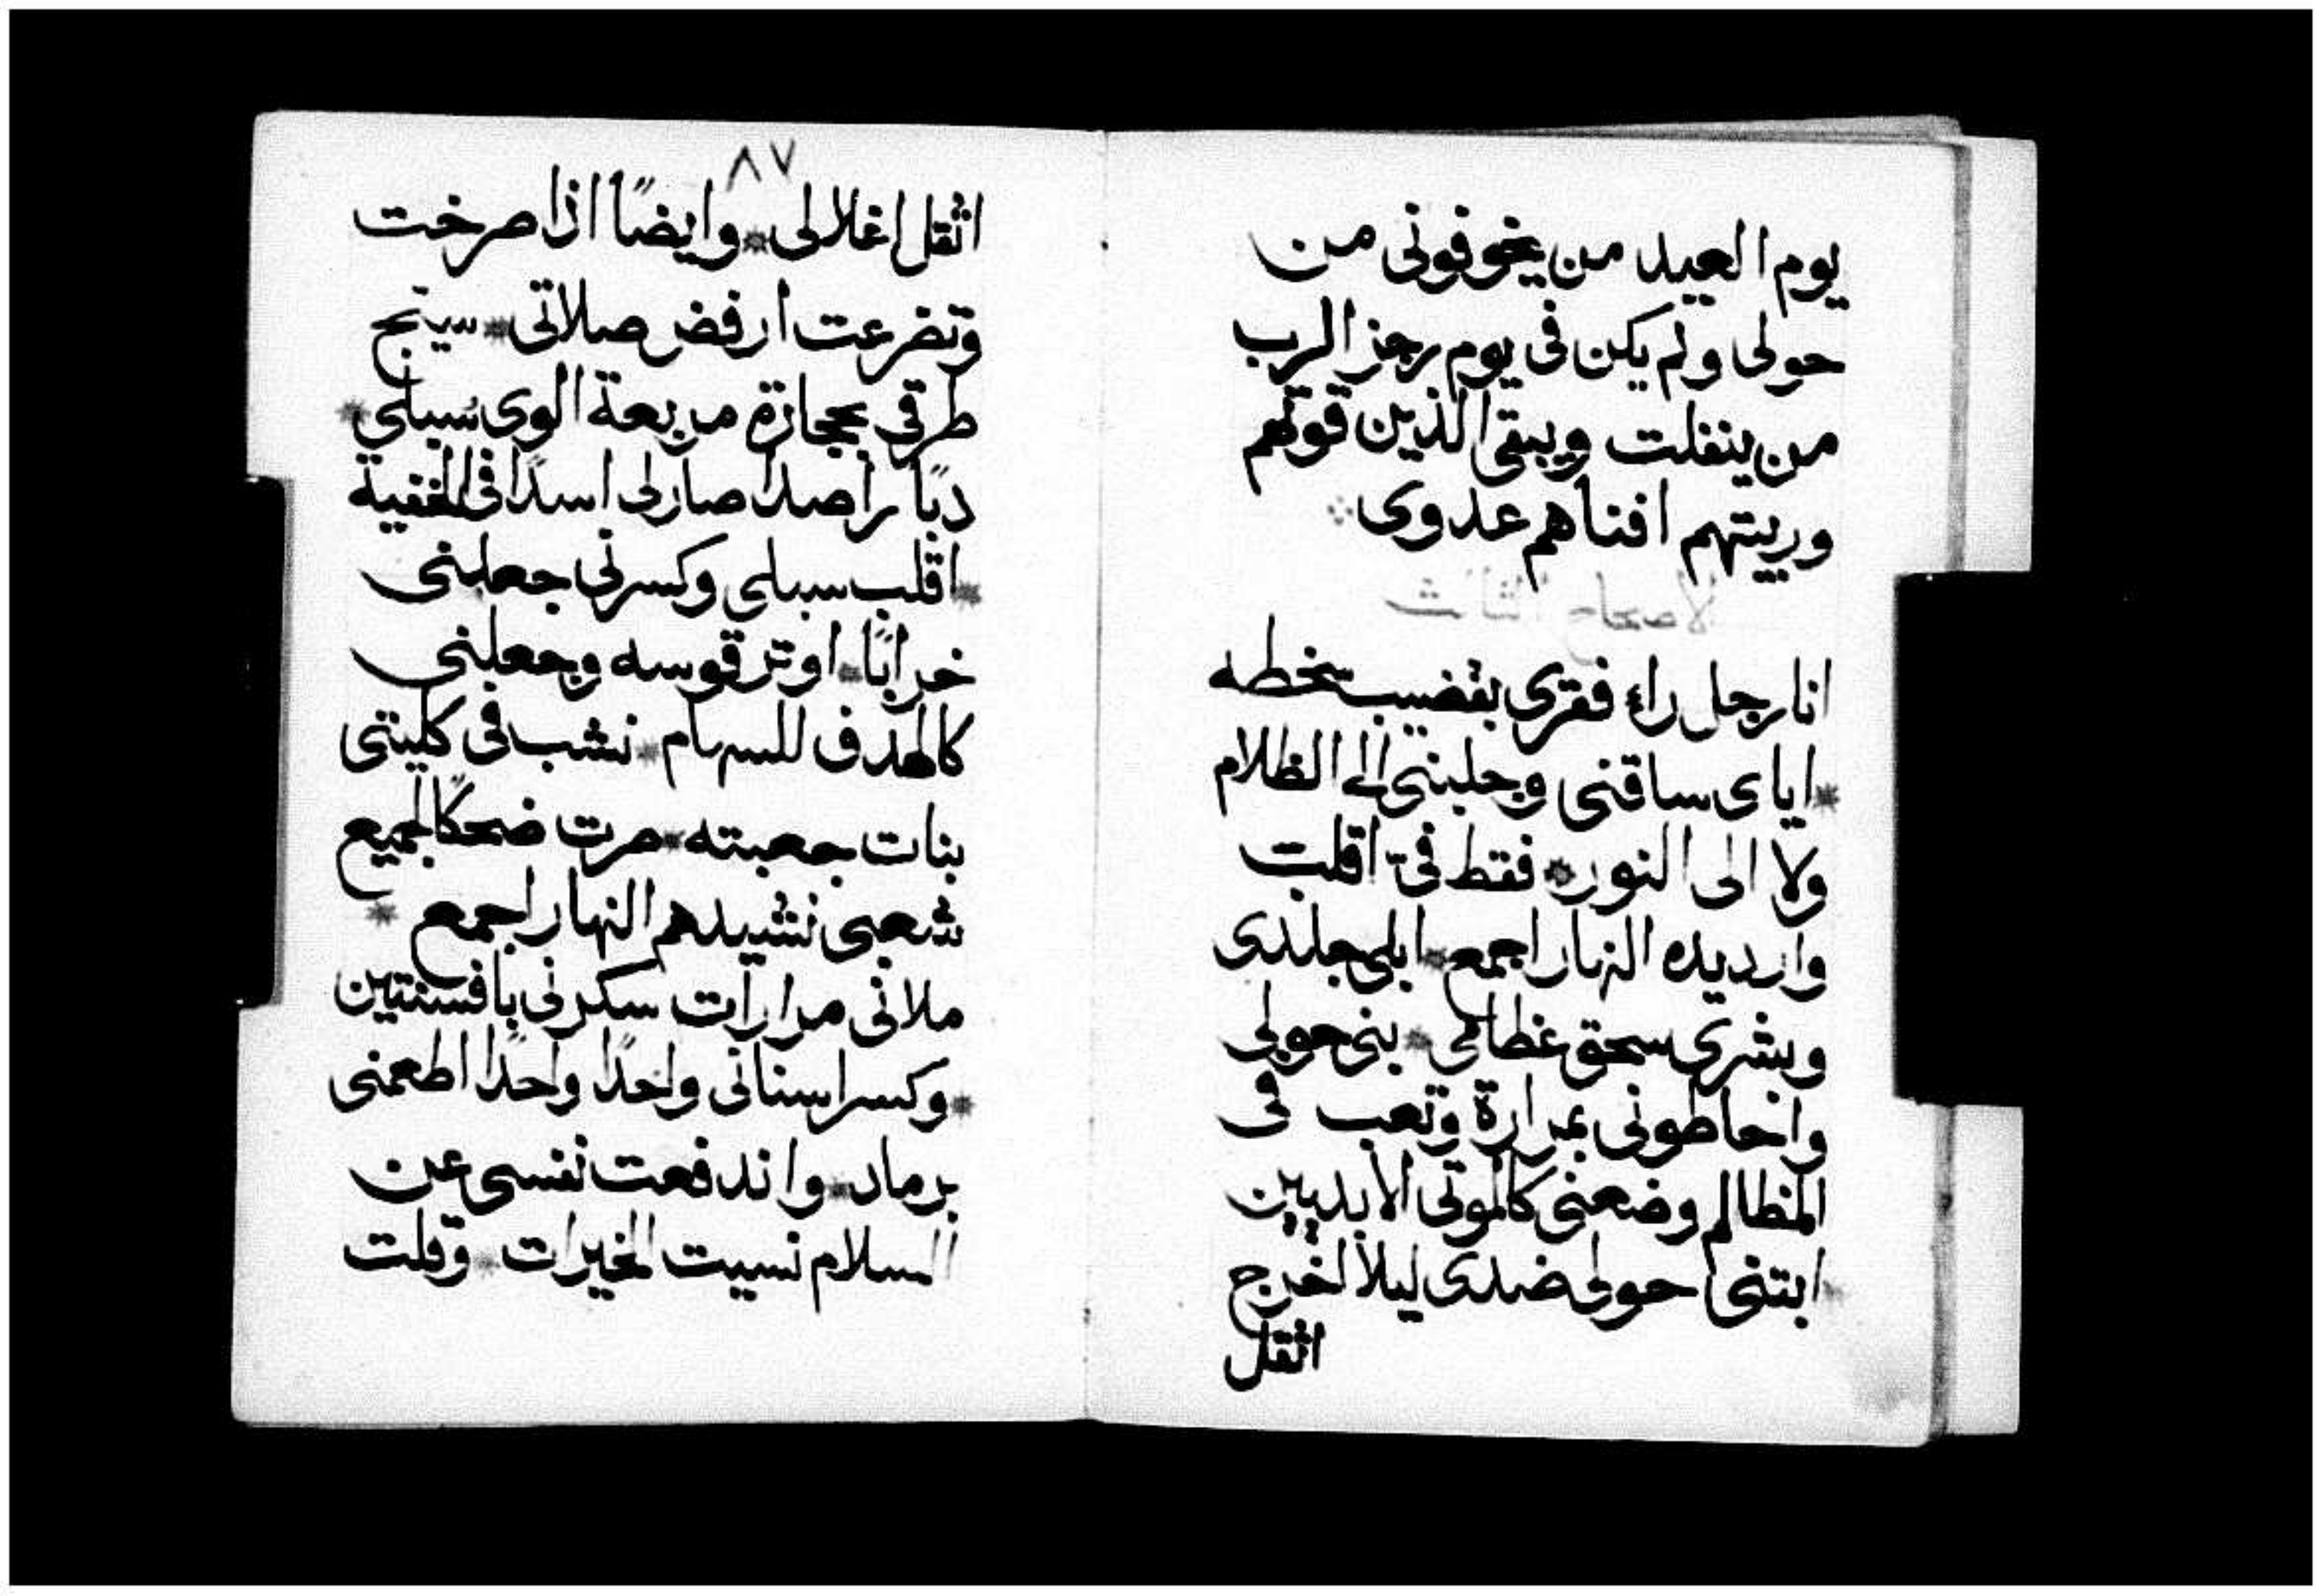 يوم العيد من يخوفونى من
حولى ولم يكن فى يوم رجز الرب
من ينفلت ويبقى الذين قوتهم
وربيتهم افناهم عدوى
الاصحاح الثالث
انا رجل راء فقرى بقضيب سخطه
اياى ساقنى وجلبنى الى الظلام
ولا الى النور فقط فىّ اقلب
وارد يده النهار اجمع ابلى جلدى
وبشرى سحق عظامى بنى حولى
واحاطونى بمرارة وتعب فى
المظالم وضعنى كالموتى الابديين
ابتنى حولى ضدى ليلا اخرج
اثقل
٨٧
اثقل اغلالى وايضًا اذا صرخت
وتضرعت ارفض صلاتى سيج
طرقى بحجارة مربعة الوى سبلى
دبًا راصدا صار لى اسدًا فى الخفية
اقلب سبلى وكسرنى جعلنى
خرابًا اوتر قوسه وجعلنى
كالهدف للسهام نشب فى كليتى
بنات جعبته صرت ضحكًا لجميع
شعبى نشيدهم النهار اجمع
ملانى مرارات سكرنى بافسنتين
وكسر اسنانى واحدًا واحدًا اطعمنى
برماد واندفعت نفسى عن
السلام نسيت الخيرات وقلت